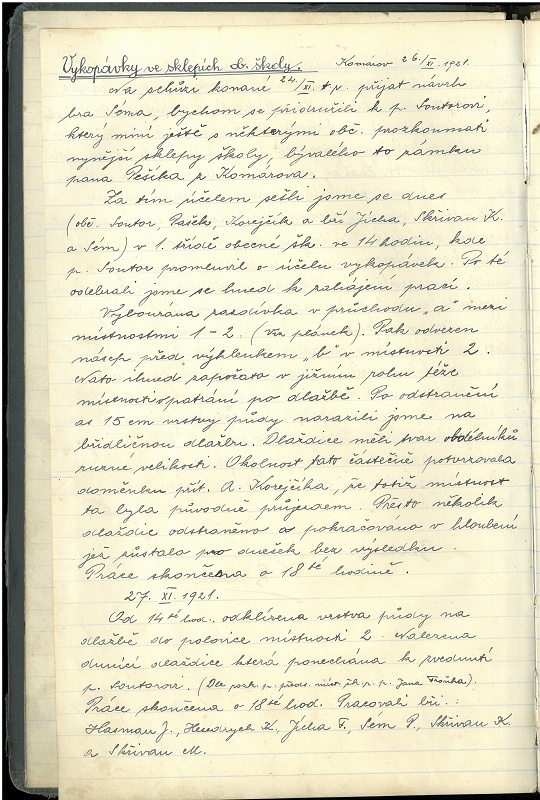 Vykopávky ve sklepích ob. školy. Komárov 26./XI. 1921.
Na schůzi konané 24./XI. t.r. přijat návrh
bra Séma, bychom se přidružili k p. Soutorovi,
který míní ještě s některými obč. prozkoumati
nynější sklepy školy, bývalého to zámku
pana Pešíka z Komárova.
Za tím účelem sešli jsme se dnes
(obč. Soutor, Pašek, Korejčík a bří Jícha, Skřivan K.
a Sém) v 1. třídě obecné šk. ve 14 hodin, kde
p. Soutor promluvil o účelu vykopávek. Po té
odebrali jsme se hned k zahájení prací.
Vybourána zazdívka v průchodu "a" mezi
místnostmi 1-2. (viz plánek). Pak odvezen
násep před výklenkem "b" v místnosti 2.
Nato ihned započato v jižním rohu téže
místnosti pátrání po dlažbě. Po odstranění
as 15 cm vrstvy půdy narazili jsme na
břidličnou dlažbu. Dlaždice měli tvar obdélníků
různé velikosti. Okolnost tato částečně potvrzovala
domněnku přít. A. Korejčíka, že totiž místnost
ta byla původně průjezdem. Přesto několik
dlaždic odstraněno a pokračováno v hloubení
jež zůstalo pro dnešek bez výsledku.
Práce skončena o 18té hodině.
27. XI. 1921.
Od 14té hod. odklizena vrstva půdy na
dlažbě do polovice místnosti 2. Nalezena
dunící dlaždice která ponechána k zvednutí
p. Soutorovi. (Dle p. předs. míst. p. p. Jana).
Práce skončena o 18té hod. Pracovali bří.:
Hasman J., Hendrych K., Jícha F., Sém P., Skřivan K.
a Skřivan M.